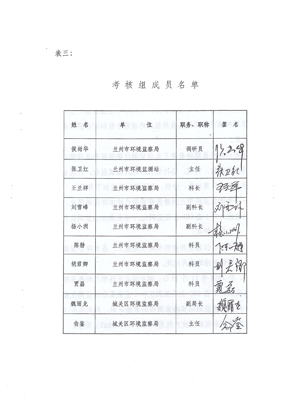 表三：
考核组成员名单
姓名 单位 职务、职称 签名
侯始华 兰州市环境监察局 调研员
张卫红 兰州市环境监测站 主任 张卫红
王兰祥 兰州市环境监察局 科长
刘雪峰 兰州市环境监察局 副科长
杨小洲 兰州市环境监察局 副科长 杨小洲
陈静 兰州市环境监察局 科员 陈静
胡君卿 兰州市环境监察局 科员
贾磊 兰州市环境监察局 科员 贾磊
魏丽龙 城关区环境监察局 副局长
俞鉴 城关区环境监察局 主任